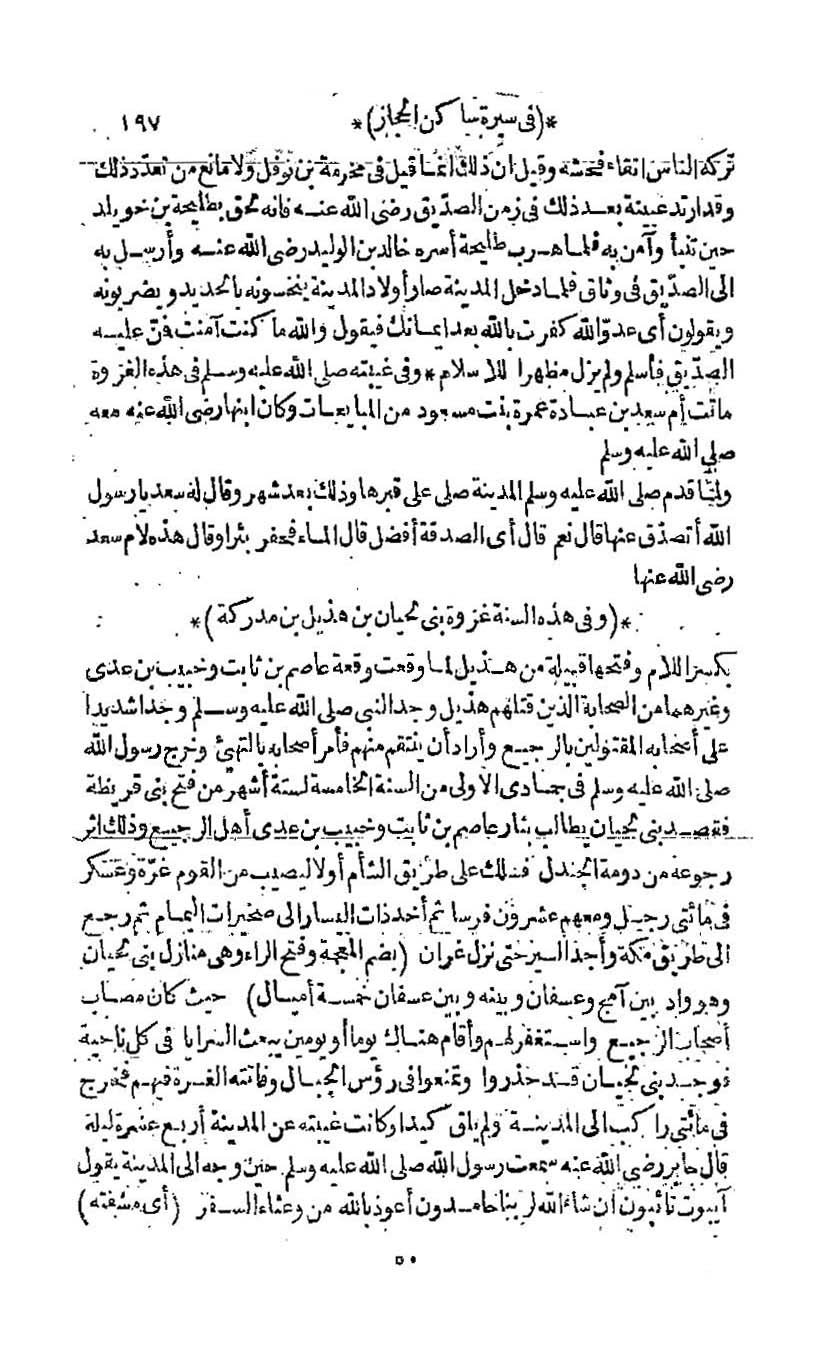 *(فى سيرة ساكن الحجاز)* ١٩٧
تركه الناس اتقاء فحشه وقيل ان ذلك انما قيل فى مخرمة بن نوفل ولا مانع من تعدد ذلك
وقد ارتد عيينة بعد ذلك فى زمن الصدّيق رضى الله عنه فانه لحق بطليحة بن خويلد
حين تنبأ وآمن به فلما هرب طليحة أسره خالد بن الوليد رضى الله عنه وأرسل به
الى الصدّيق فى وثاق فلما دخل المدينة صار أولاد المدينة ينخسونه بالحديد ويضربونه
ويقولون أى عدوّ الله كفرت بالله بعد ايمانك فيقول والله ما كنت آمنت فمنّ عليه
الصدّيق فأسلم ولم يزل مظهرا للاسلام * وفى غيبته صلى الله عليه وسلم فى هذه الغزوة
ماتت أم سعد بن عبادة عمرة بنت مسعود من المبايعات وكان ابنها رضى الله عنه معه
صلى الله عليه وسلم
ولمّا قدم صلى الله عليه وسلم المدينة صلى على قبرها وذلك بعد شهر وقال له سعد يا رسول
الله أتصدّق عنها قال نعم قال أى الصدقة أفضل قال الماء فحفر بئرا وقال هذه لام سعد
رضى الله عنها
*(وفى هذه السنة غزوة بنى لحيان بن هذيل بن مدركة)*
بكسر اللام وفتحها قبيلة من هذيل لما وقعت وقعة عاصم بن ثابت وخبيب بن عدى
وغيرهما من الصحابة الذين قتلهم هذيل وجد النبى صلى الله عليه وسلم وجدا شديدا
على أصحابه المقتولين بالرجيع وأراد أن ينتقم منهم فأمر أصحابه بالتهئ وخرج رسول الله
صلى الله عليه وسلم فى جمادى الاولى من السنة الخامسة لستة أشهر من فتح بنى قريظة
فقصد بنى لحيان يطالب بثار عاصم بن ثابت وخبيب بن عدى أهل الرجيع وذلك اثر
رجوعه من دومة الجندل فسلك على طريق الشأم أولا ليصيب من القوم غرّة وعسكر
فى مائتى رجل ومعهم عشرون فرسا ثم أخذ ذات اليسار الى صخيرات اليمام ثم رجع
الى طريق مكة وأجدّ السير حتى نزل غران (بضم المعجمة وفتح الراء وهى منازل بنى لحيان
وهو واد بين أمج وعسفان وبينه وبين عسفان خمسة أميال) حيث كان مصاب
أصحاب الرجيع واستغفر لهم وأقام هناك يوما أو يومين يبعث السرايا فى كل ناحية
فوجد بنى لحيان قد حذروا وتمنعوا فى رؤس الجبال وفاتته الغرة فيهم فخرج
فى مائتى راكب الى المدينة ولم يلق كيدا وكانت غيبته عن المدينة أربع عشرة ليلة
قال جابر رضى الله عنه سمعت رسول الله صلى الله عليه وسلم حين وجه الى المدينة يقول
آيبون تائبون ان شاء الله لربنا حامدون أعوذ بالله من وعثاء السفر (أى مشقته)